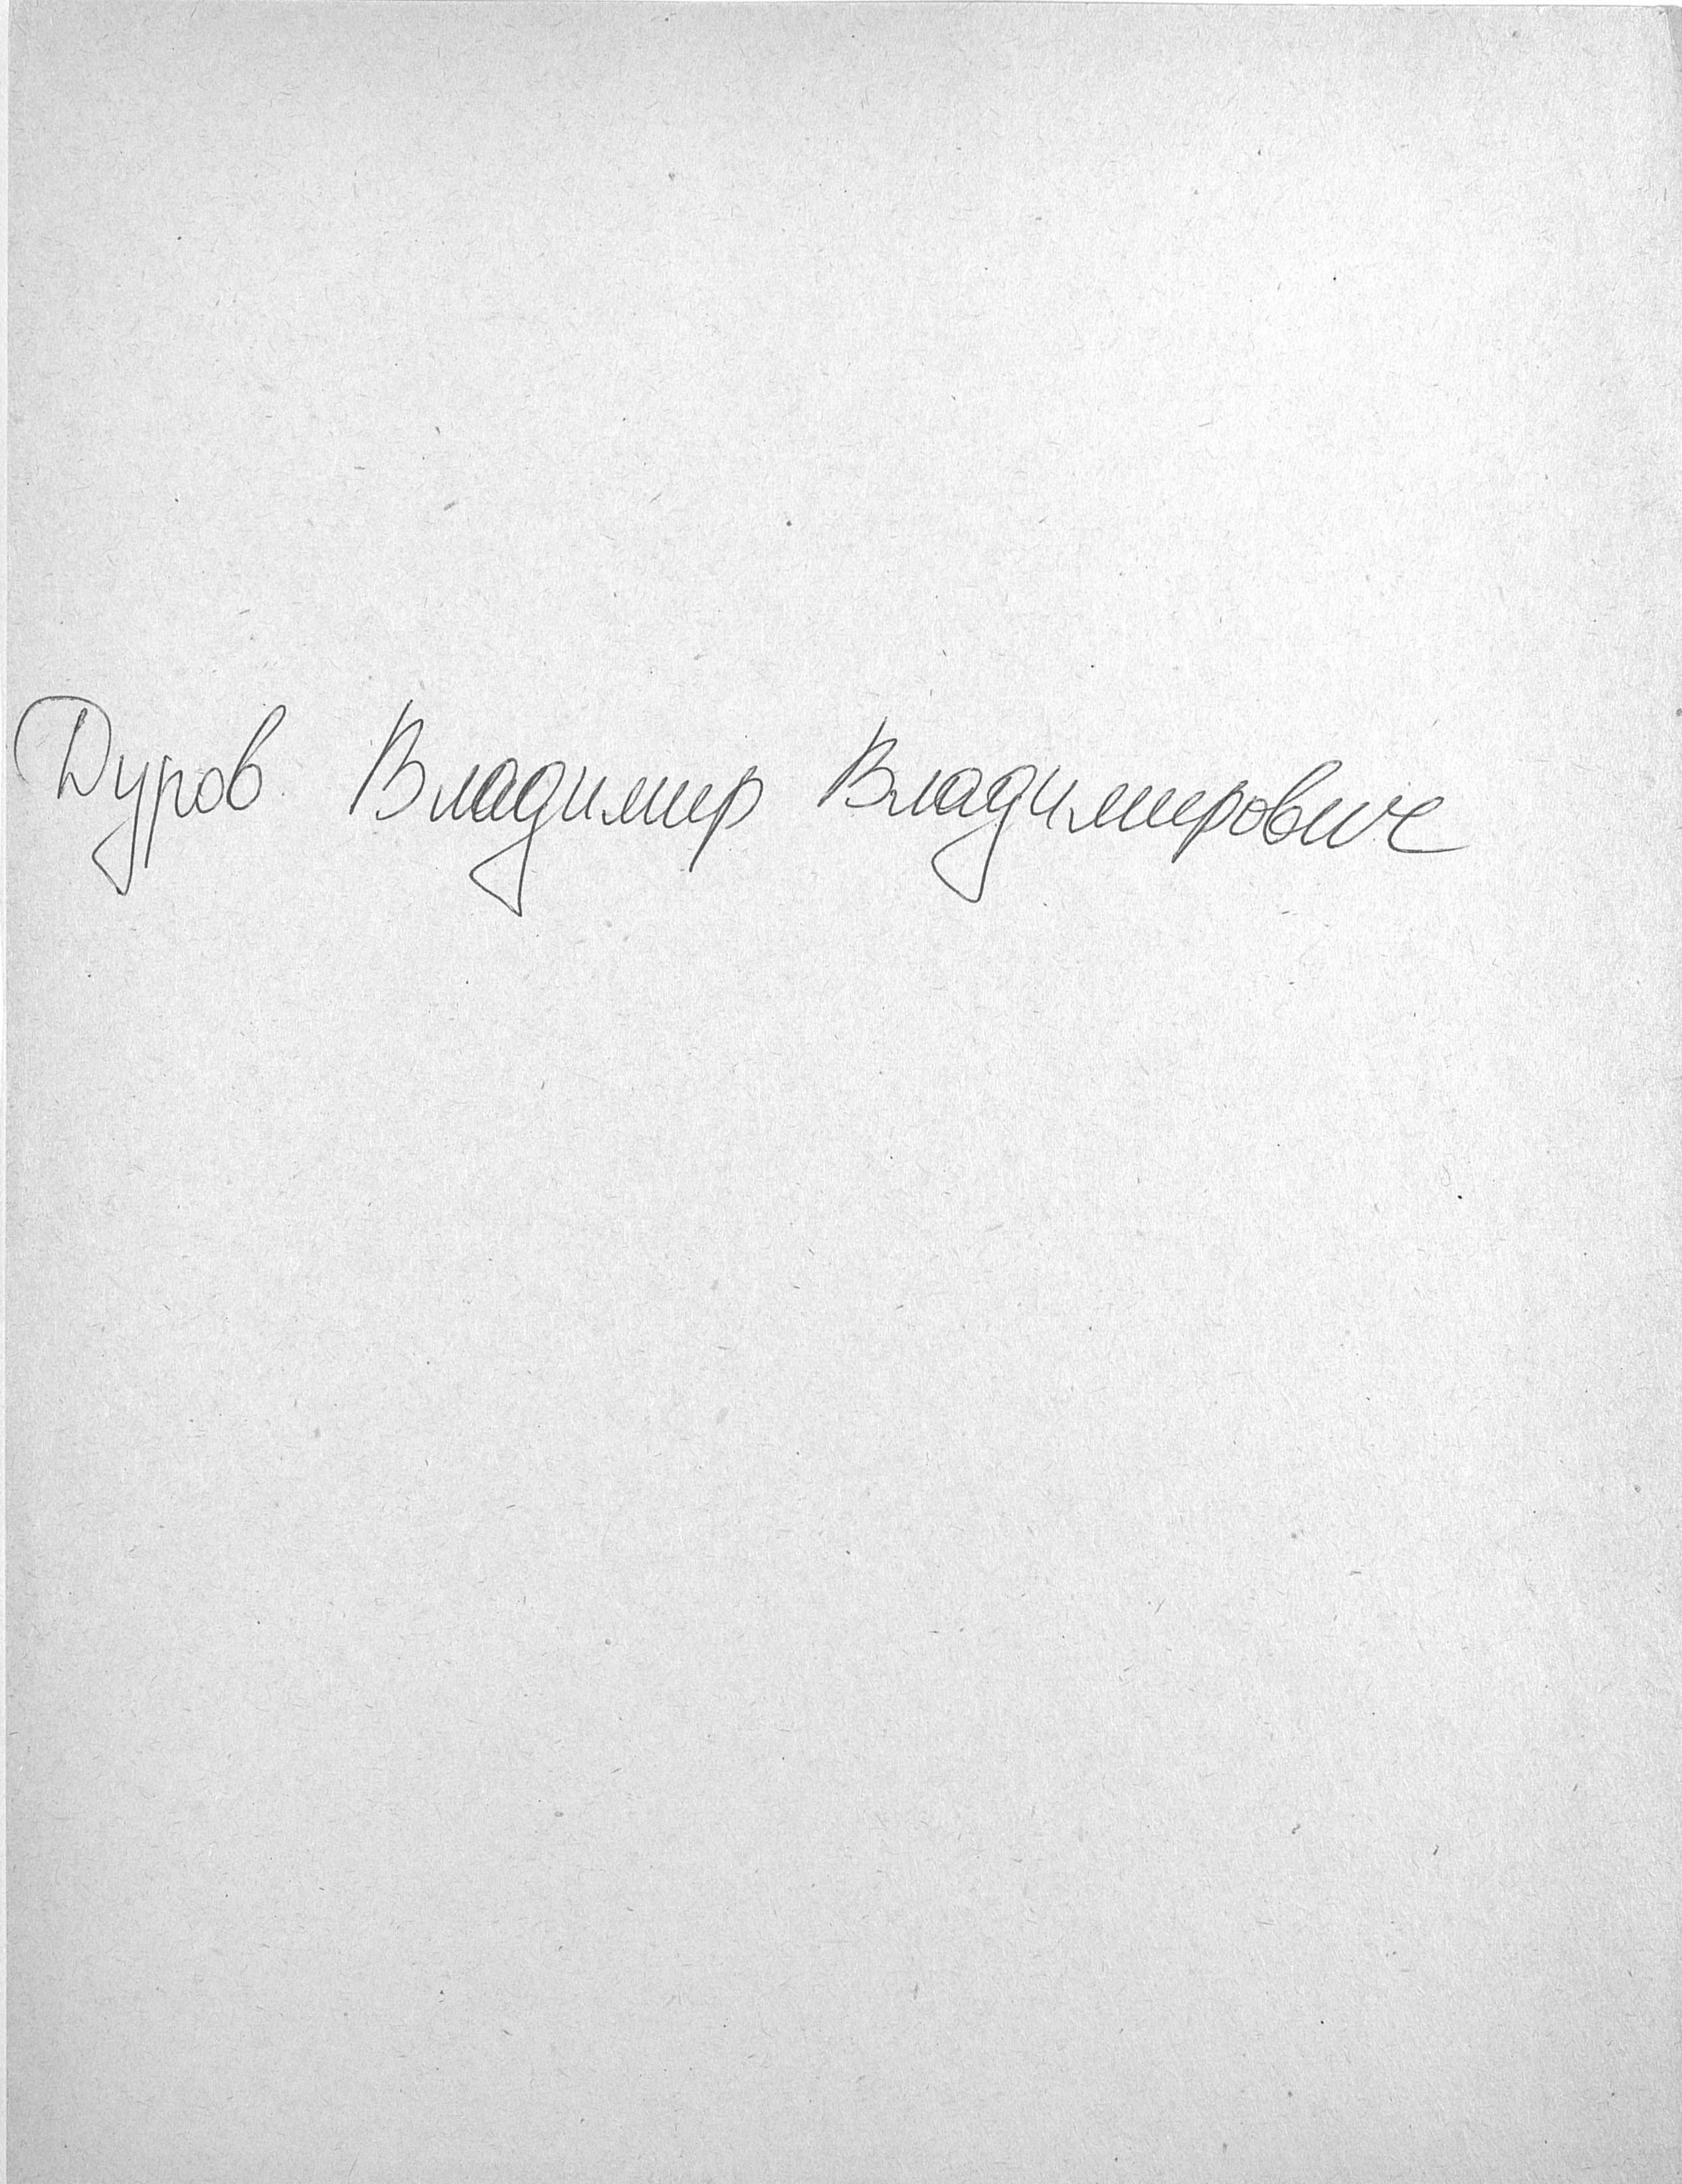 Дуров Владимир Владимирович